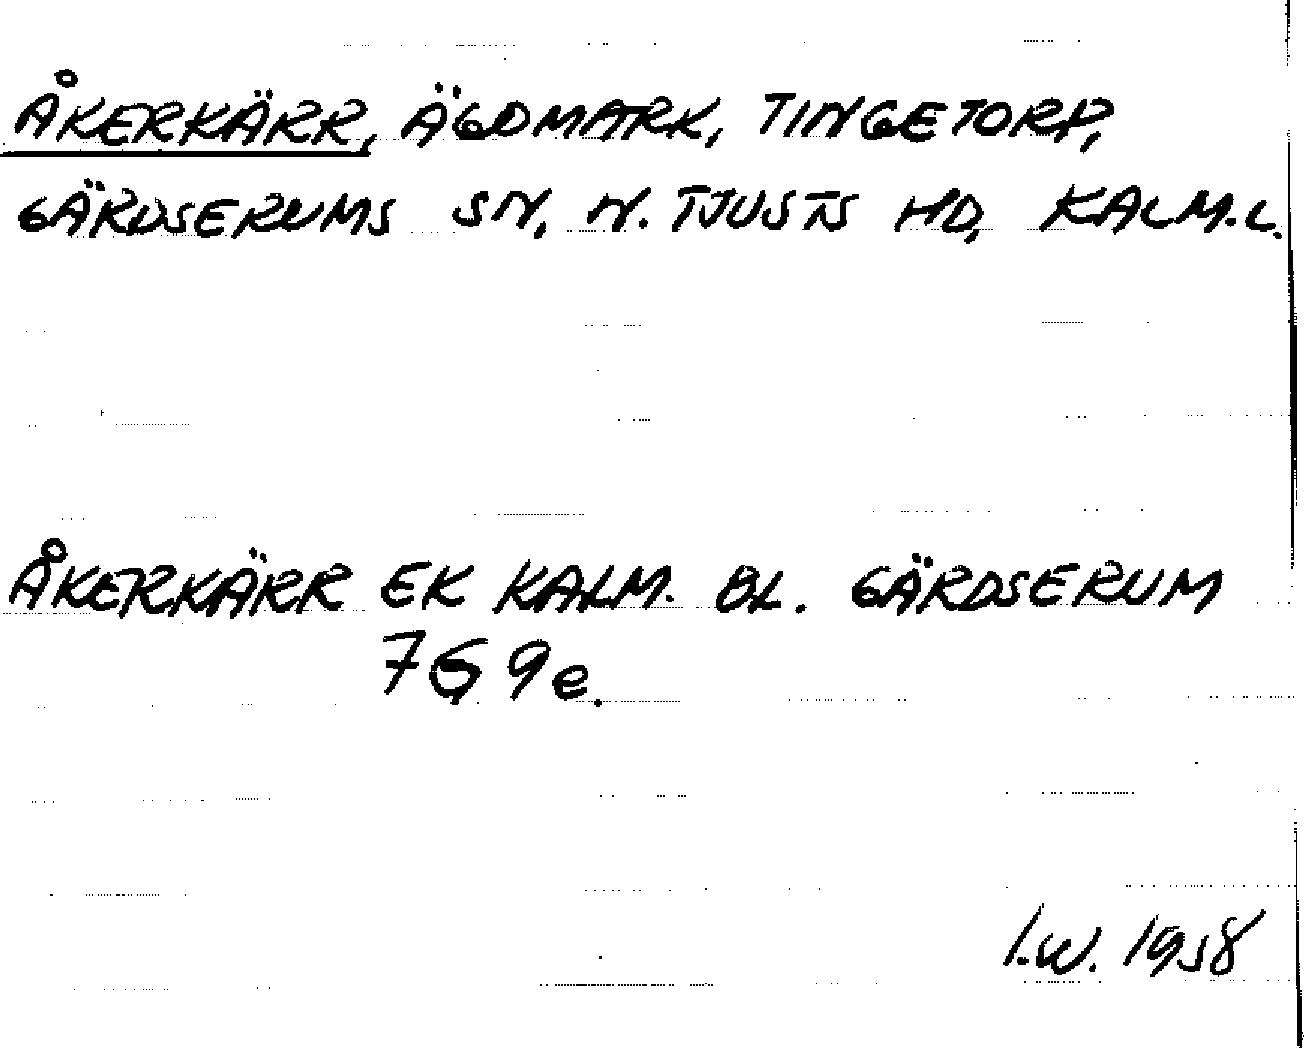 ÅKERKÄRR, ÄGDMARK, TINGETORP,
GÄRDSERUMS SN, N. TJUSTS HD, KALM.L.
ÅKERKÄRR EK KALM. BL. GÄRDSERUM
7G 9e.
I.W. 1958